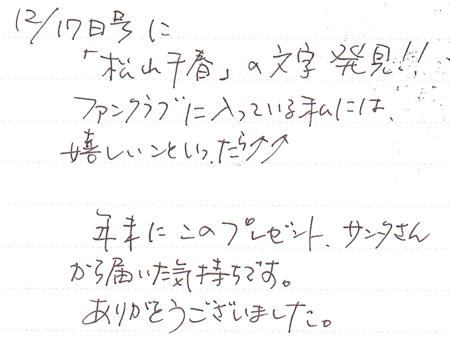 12/17日号に
「松山千春」の文字発見!!
ファンクラブに入っている私には、
嬉しいンといったら↑↑
年末にこのプレゼント、サンタさん
から届いた気持ちです。
ありがとうございました。